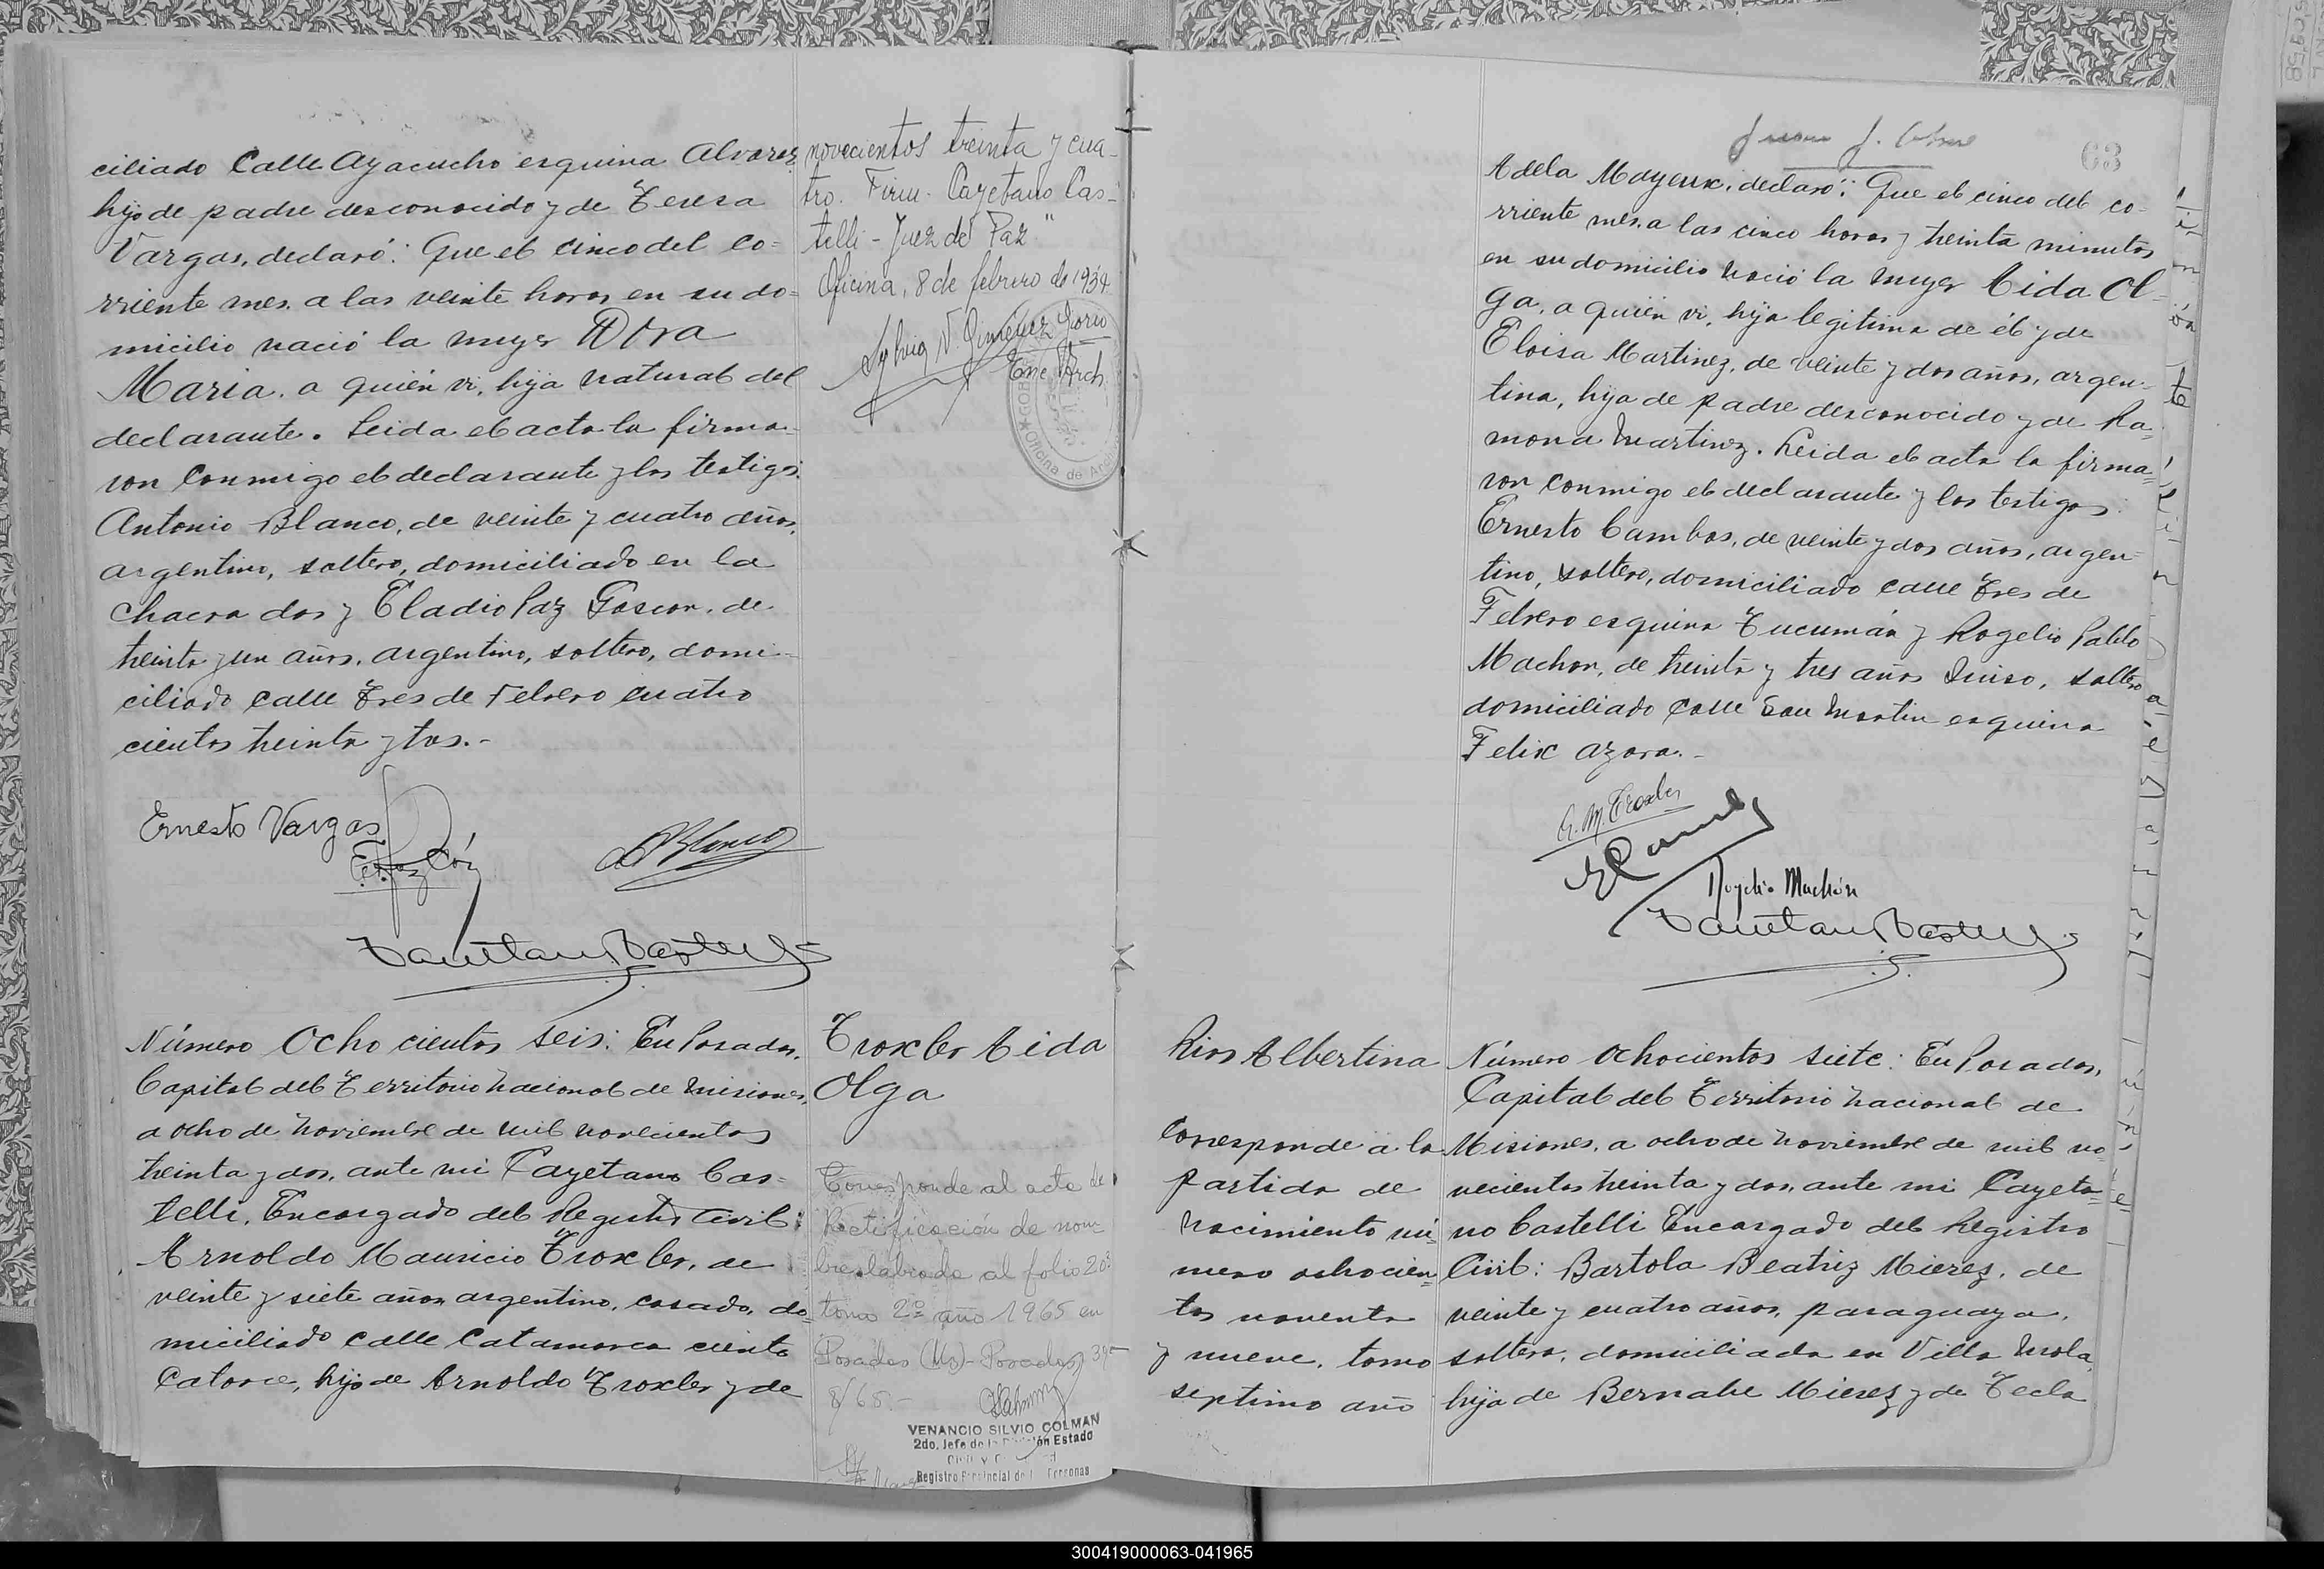 ciliado Calle Ayacucho esquina Alvarez
hijo de padre desconocido y de Teresa
Vargas, declaró: Que el cinco del co=
rriente mes, a las veinte horas en su do=
micilio nació la mujer Dora
Maria, a quién vi, hija natural del
declarante. Leida el acta la firma-
ron conmigo el declarante y los testigos:
Antonio Blanco, de veinte y cuatro años,
argentino, soltero, domiciliado en la
chacra dos y Eladio Paz Gascon, de
treinta y un años, argentino, soltero, domi-
ciliado calle Tres de Febrero cuatro
cientos treinta y tres.-
Ernesto Vargas
novecientos treinta y cua-
tro. Firm. Cayetano Cas-
telli - Juez de Paz"
Oficina, 8 de febrero de 1934.
Enc. Arch.
Oficina de
Número Ochocientos seis: En Posadas,
Capital del Territorio Nacional de Misiones,
a ocho de Noviembre de mil novecientos
treinta y dos, ante mi Cayetano Cas-
telli, Encargado del Registro Civil:
Arnoldo Mauricio Troxler, de
veinte y siete años, argentino, casado, do-
miciliado calle Catamarca ciento
Catorce, hijo de Arnoldo Troxler y de
Troxler Aida
Olga
Corresponde al acta de
Rectificación de nom
bre labrada al folio 20
tomo 2º año 1965 en
Posadas (Ms)- Posadas,
8/65.-
VENANCIO SILVIO COLMAN
2do. Jefe de la División Estado
Registro Provincial de las Personas
63
Adela Mayeux, declaró: Que el cinco del co-
rriente mes, a las cinco horas y treinta minutos
en su domicilio nació la mujer Aida Ol-
ga, a quién vi, hija legitima de él y de
Eloisa Martinez, de veinte y dos años, argen-
tina, hija de padre desconocido y de Ra-
mona Martinez. Leida el acta la firma=
ron conmigo el declarante y los testigos:
Ernesto Cambas, de veinte y dos años, argen-
tino, soltero, domiciliado calle Tres de
Febrero esquina Tucumán y Rogelio Pablo
Machon, de treinta y tres años Suizo, soltero
domiciliado calle San Martin esquina
Felix Azara.-
A. M. Troxler
Rogelio Machón
Rios Albertina
Corresponde a la
partida de
nacimiento nú-
mero ochocien=
tos noventa
y nueve, tomo
septimo año
Número Ochocientos siete: En Posadas,
Capital del Territorio Nacional de
Misiones, a ocho de Noviembre de mil no-
vecientos treinta y dos, ante mi Cayeta=
no Castelli Encargado del Registro
Civil: Bartola Beatriz Mierez, de
veinte y cuatro años, paraguaya,
soltera, domiciliada en Villa Mola,
hija de Bernabe Mierez y de Tecla
300419000063-041965